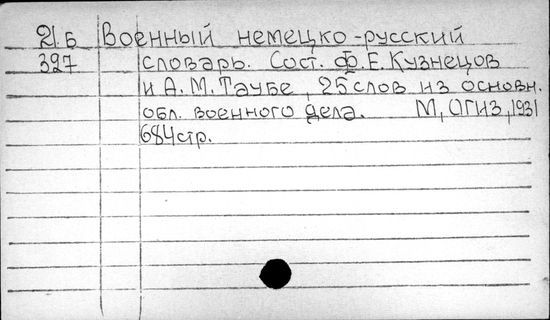 21.Б Военный немецко-русский
327 словарь. Сост. Ф.Е.Кузнецов
и А.М.Таубе, 25 слов из основн.
обл. военного дела. М, ОГИЗ, 1931
684 стр.